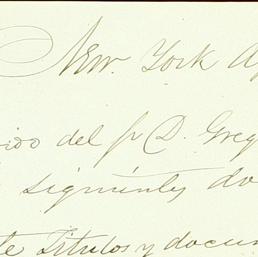 New. York Ap
ido del Sr D. Greg
siguientes do
te Titulos y docum